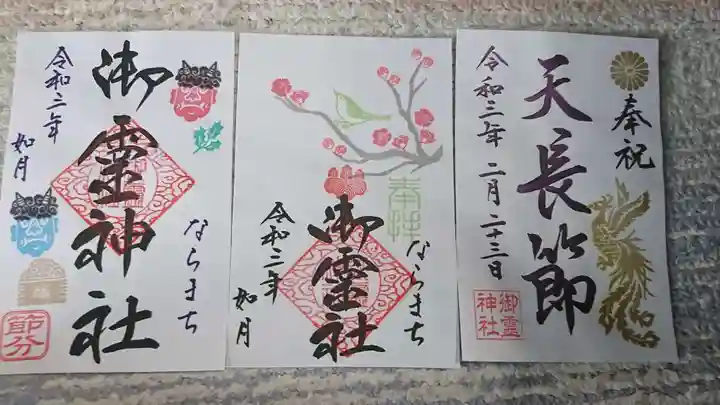 令和三年
如月
御霊神社
ならまち
節分
奉拝
令和三年
如月
御霊神社
ならまち
奉祝
天長節
令和三年二月二十三日
御霊
神社